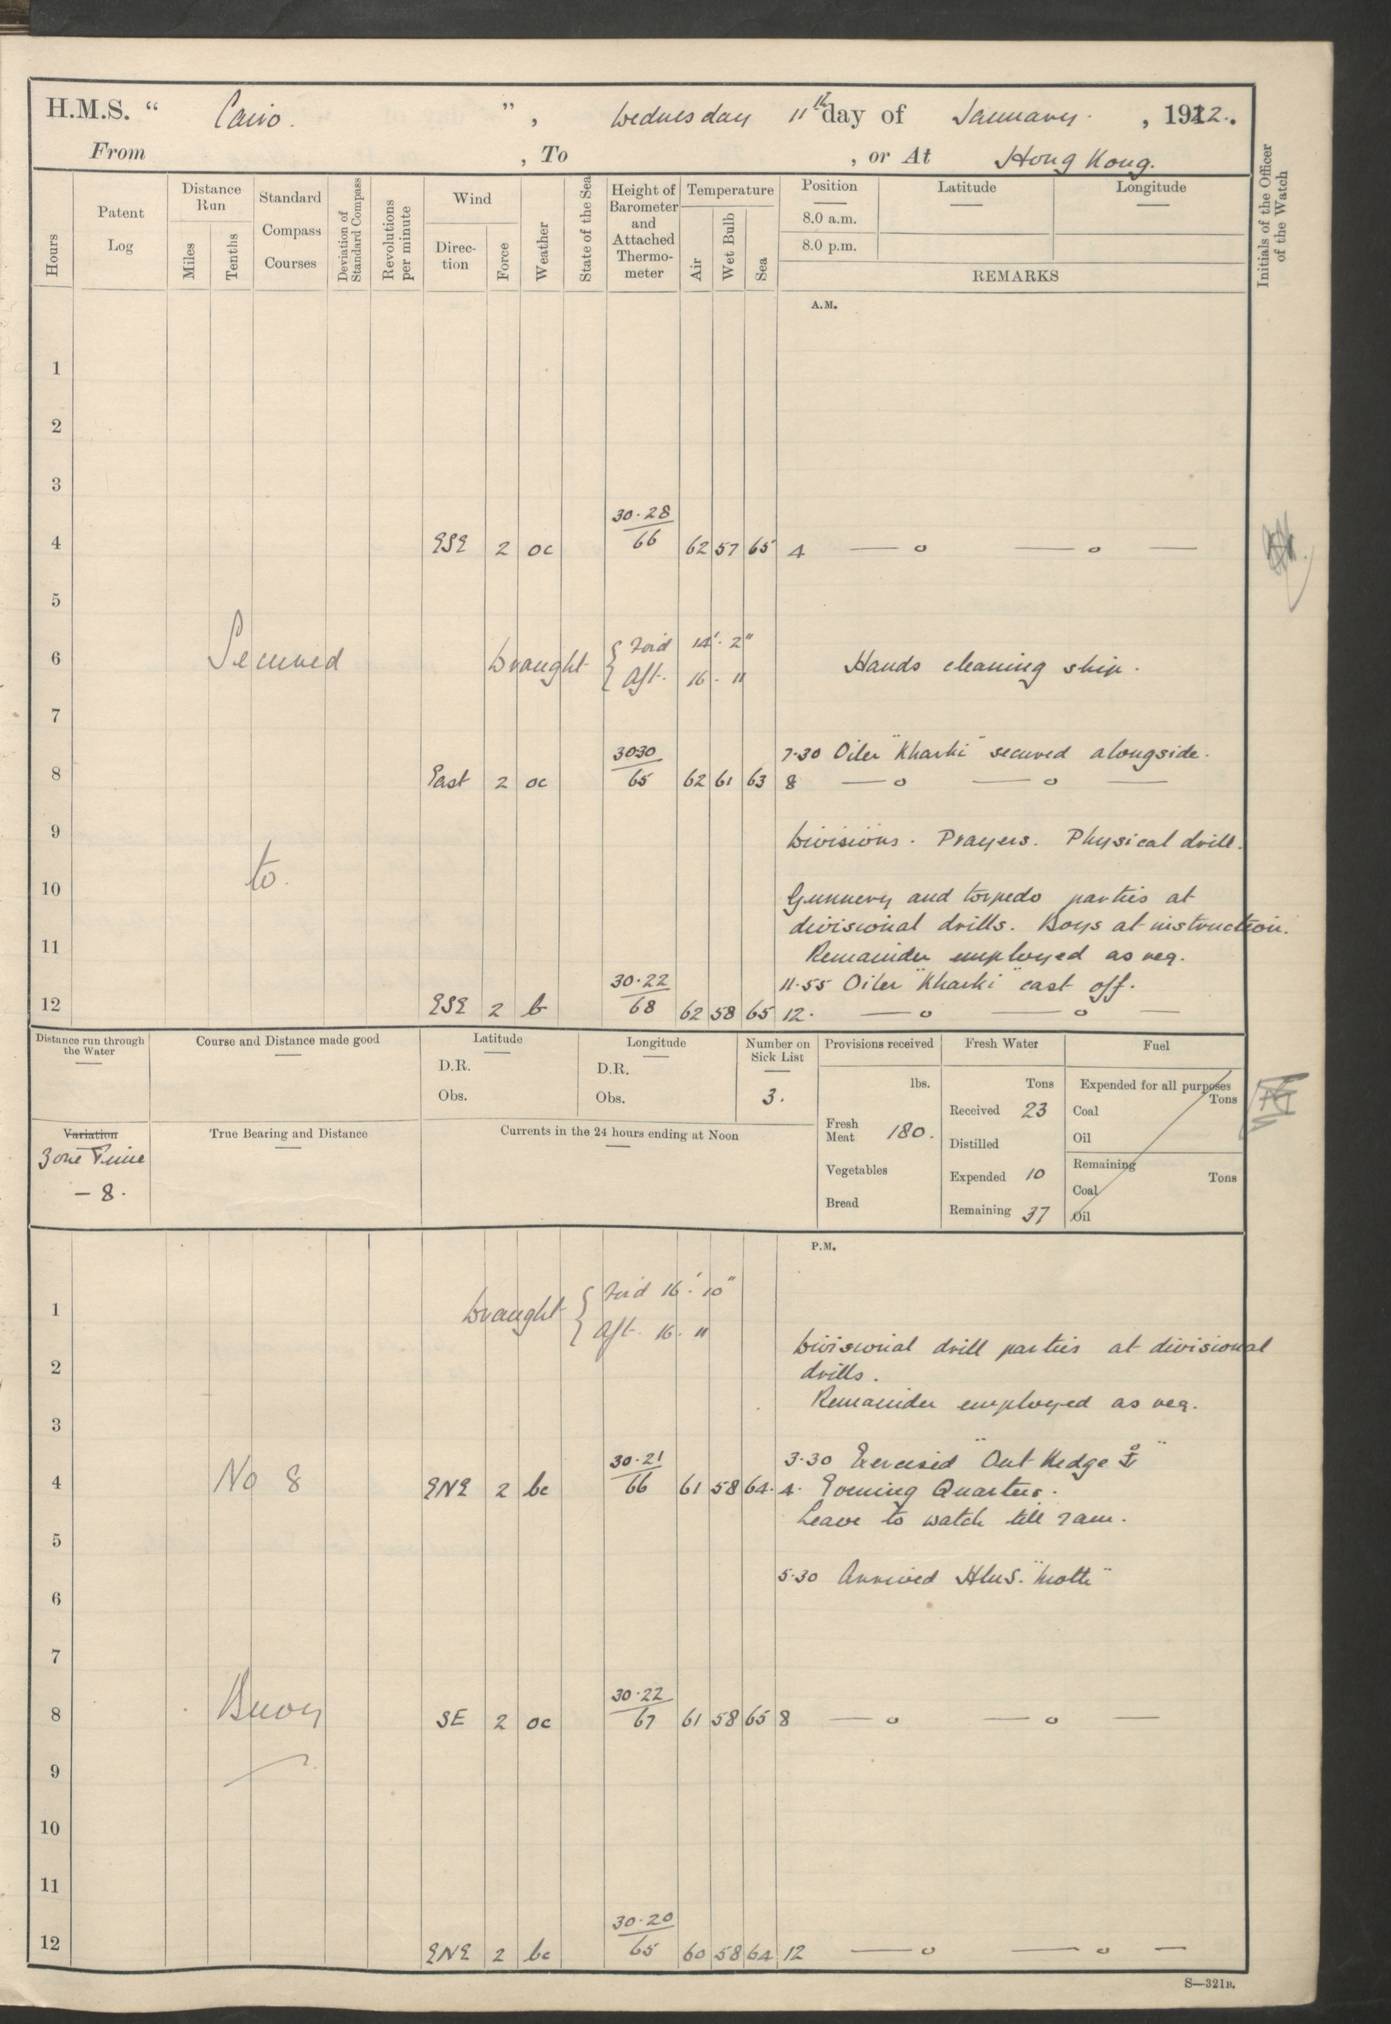 H.M.S. " Cairo. ", Wednesday 11th day of January. , 1922.
From , To , or At Hong Kong.
Hours
Patent Log
Distance Run
Miles
Tenths
Standard Compass Courses
Deviation of Standard Compass
Revolutions per minute
Wind
Direction
Force
Weather
State of the Sea
Height of Barometer and Attached Thermometer
Temperature
Air
Wet Bulb
Sea
Position
8.0 a.m.
8.0 p.m.
Latitude
Longitude
REMARKS
Initials of the Officer of the Watch
A.M.
1
2
3
4 ESE 2 oc 30·28 / 66 62 57 65 4 — o — o —
5
6 Secured Draught { Forid 14'·2" Aft. 16 - 11 Hands cleaning ship.
7
7·30 Oiler "Kharki" secured alongside.
8 East 2 oc 3030 / 65 62 61 63 8 — o — o —
9 Divisions. Prayers. Physical drill.
10 to. Gunnery and torpedo parties at
divisional drills. Boys at instruction.
11 Remainder employed as req.
11·55 Oiler "Kharki" cast off.
12 ESE 2 b 30·22 / 68 62 58 65 12. — o — o —
Distance run through the Water
Course and Distance made good
Latitude
D.R.
Obs.
Longitude
D.R.
Obs.
Number on Sick List
3.
Provisions received
lbs.
Fresh Meat 180.
Vegetables
Bread
Fresh Water
Tons
Received 23
Distilled
Expended 10
Remaining 37
Fuel
Expended for all purposes
Tons
Coal
Oil
Remaining
Tons
Coal
Oil
Variation
Zone Time
- 8.
True Bearing and Distance
Currents in the 24 hours ending at Noon
P.M.
1 Draught { Forid 16'·10" Aft. 16 · 11
Divisional drill parties at divisional
2 drills.
Remainder employed as req.
3
3·30 Exercised "Out Kedge "
4 No 8 ENE 2 bc 30·21 / 66 61 58 64. 4. Evening Quarters.
Leave to watch till 7am.
5
5·30 Arrived HMS. "Moth"
6
7
8 Buoy SE 2 oc 30·22 / 67 61 58 65 8 — o — o —
9
10
11
12 ENE 2 bc 30·20 / 65 60 58 64 12 — o — o —
S—321B.